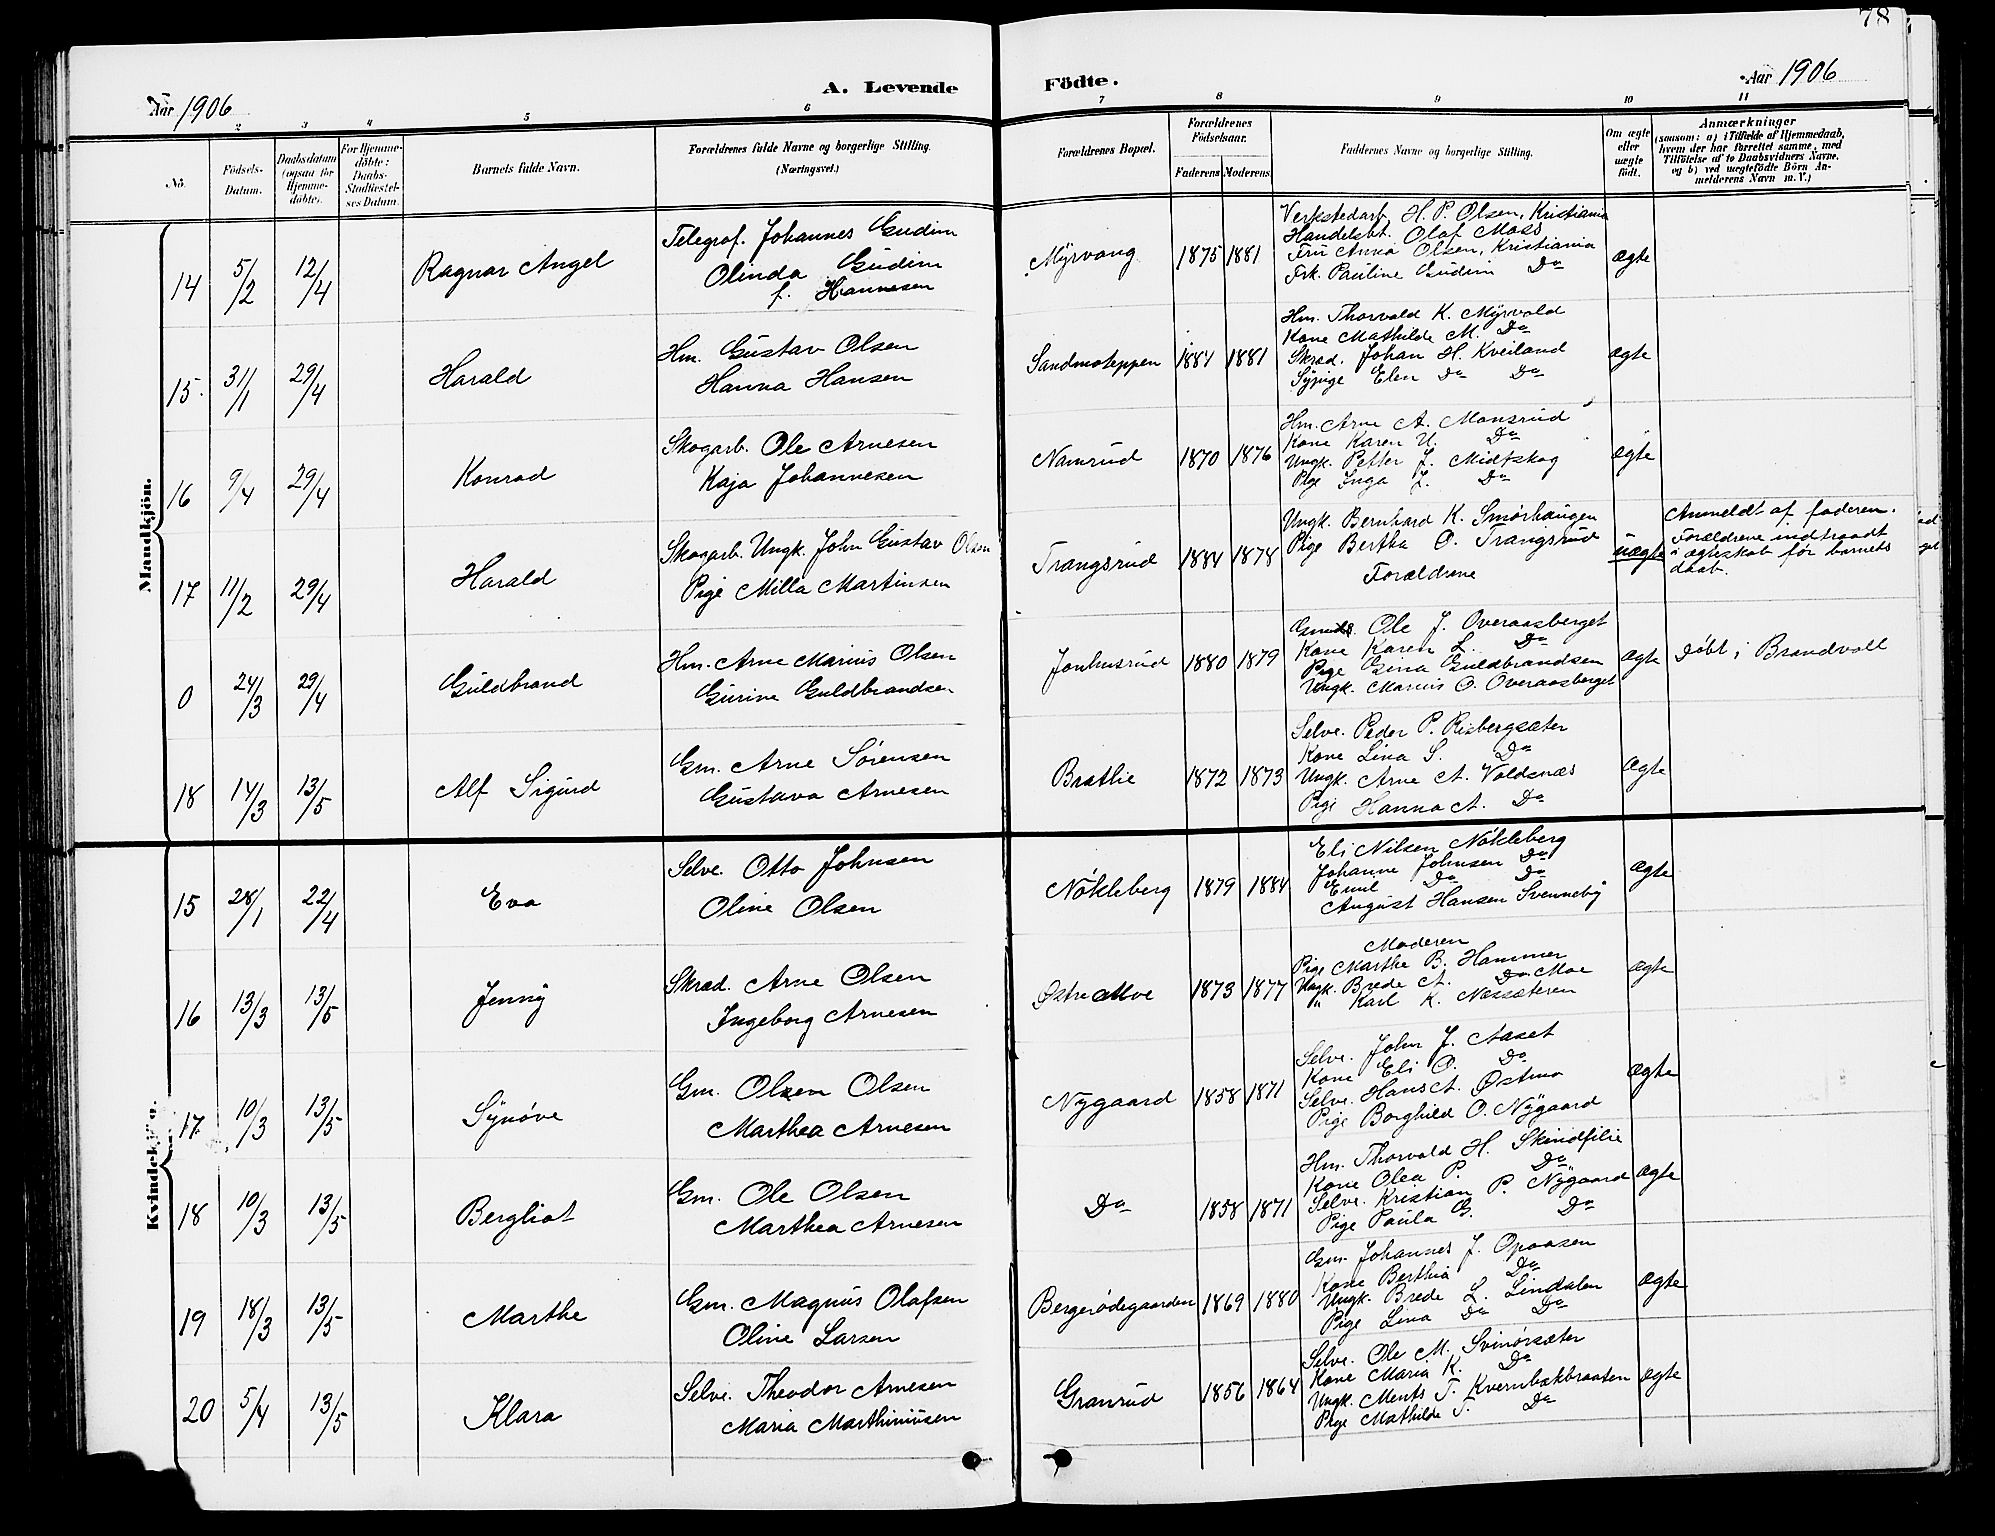 78
Aar 1906
A. Levende Födte.
Aar 1906
2 3 4 5 6 7 8 9 10 11
No.
Födsels-Datum.
Daabsdatum (ogsaa for Hjemme-döbte).
For Hjemme-döbte: Daabs-Stadfæstel-ses Datum.
Barnets fulde Navn.
Forældrenes fulde Navne og borgerlige Stilling.
(Næringsvei.)
Forældrenes Bopæl.
Forældrenes Födselsaar.
Faderens Moderens
Faddernes Navne og borgerlige Stilling.
Om ægte eller uægte födt.
Anmærkninger
(saasom: a) i Tilfælde af Hjemmedaab,
hvem der har forrettet samme, med
Tilföielse af to Daabsvidners Navne,
og b) ved uægtefödte Börn An-
melderens Navn m. V.)
Mandkjön.
14 5/2 12/4 Ragnar Angel
Telegraf. Johannes Gudim
Olinda Gudim
f. Hannesen
Myrvang 1875 1881
Verkstedarb. H. P. Olsen, Kristiania
Handelsbt. Olaf Moss
Fru Anna Olsen, Kristiania
Frk. Pauline Gudim Do
ægte
15. 31/1 29/4 Harald
Hm. Gustav Olsen
Hanna Hansen
Sandmoteppen 1881 1881
Hm. Thorvald K. Myrvold
Kone Mathilde M. Do
Skræd. Johan H. Kveiland
Sypige Elen Do Do
ægte
16 9/4 29/4 Konrad
Skogarb. Ole Arnesen
Kaja Johannesen
Namrud 1870 1876
Hm. Arne A. Monsrud
Kone Karen U. Do
Ungk. Petter J. Midtskog
Pige Inga J. Do
ægte
17 11/2 29/4 Harald
Skogarb. Ungk. John Gustav Olsen
Pige Milla Martinsen
Trangsrud 1884 1878
Ungk. Bernhard K. Smørhaugen
Pige Bertha O. Trangsrud
Forældrene
uægte
Anmeldt af faderen.
Forældrene indtraadt
i ægteskab før barnets
daab.
0 24/3 29/4 Guldbrand
Hm. Arne Marius Olsen
Gurine Guldbrandsen
Jonhusrud 1880 1879
Ole J. Overaasberget
Kone Karen L. Do
Pige Gina Guldbrandsen
Ungk. Marius O. Overaasberget
ægte
Døbt i Brandvoll
18 14/3 13/5 Alf Sigurd
Gm. Arne Sørensen
Gustava Arnesen
Brathe 1872 1873
Selve. Peder P. Risbergsæter
Kone Lina S. Do
Ungk. Arne A. Voldsnæs
Pige Hanna A. Do
ægte
Kvindekjön.
15 28/1 22/4 Eva
Selve. Otto Johnsen
Oline Olsen
Nökleberg 1879 1884
Eli Nilsen Nökleberg
Johanne Johnsen Do
Emil Do Do
August Hansen Svenneby
ægte
16 13/3 13/5 Jenny
Skræd. Arne Olsen
Ingeborg Arnesen
Østre Moe 1873 1877
Moderen
Pige Marthe B. Hammer
Ungk. Brede A. Do Moe
" Karl K. Næssæteren
ægte
17 10/3 13/5 Synøve
Gm. Olsen Olsen
Marthea Arnesen
Nygaard 1858 1871
Selve. John J. Aaset
Kone Eli O. Do
Selve. Hans A. Østmo
Pige Borghild O. Nygaard
ægte
18 10/3 13/5 Bergliot
Gm. Ole Olsen
Marthea Arnesen
Do 1858 1871
Hm. Thorvald H. Skindfilie
Kone Olea P. Do
Selve. Kristian P. Nygaard
Pige Paula G. Do
ægte
19 18/3 13/5 Marthe
Gm. Magnus Olafsen
Oline Larsen
Bergerødegaarden 1869 1880
Gm. Johannes J. Opaasen
Kone Berthia Do
Ungk. Brede L. Lindalen
Pige Lina Do Do
ægte
20 5/4 13/5 Klara
Selve. Theodor Arnesen
Maria Marthiniusen
Granrud 1856 1864
Selve. Ole M. Svinörsæter
Kone Maria K. Do
Ungk. Ments T. Kvernbækbraaten
Pige Mathilde T. Do
ægte